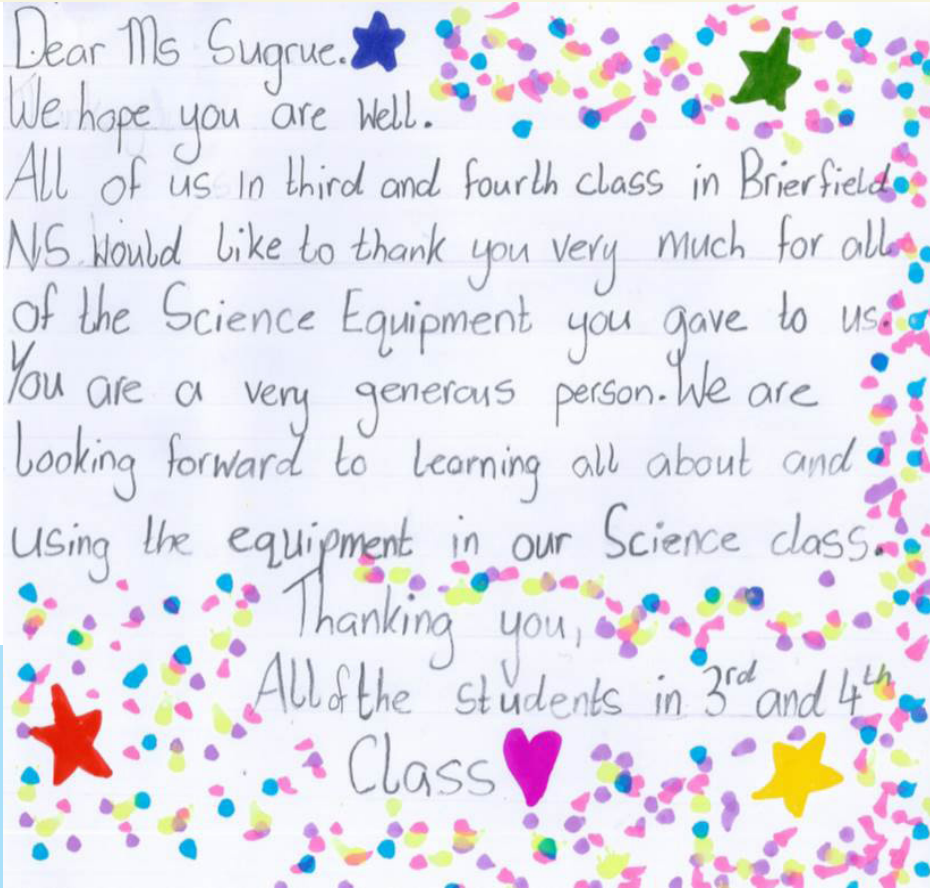 Dear Ms Sugrue.
We hope you are Well.
All of us in third and fourth class in Brierfield
NS Would like to thank you very much for all
of the Science Equipment you gave to us.
You are a very generous person. We are
Looking forward to Learning all about and
using the equipment in our Science class.
Thanking you,
All of the students in 3rd and 4th
Class